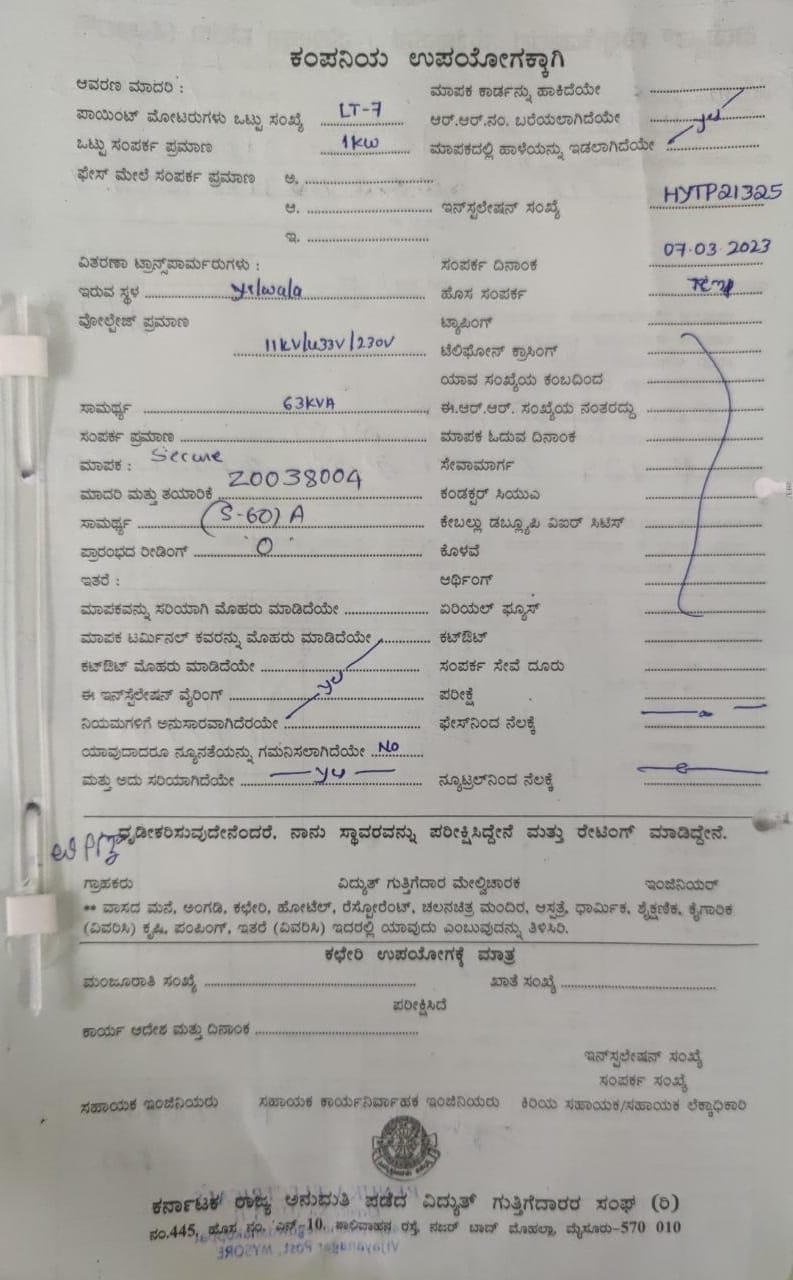 ಕಂಪನಿಯ ಉಪಯೋಗಕ್ಕಾಗಿ
ಆವರಣ ಮಾದರಿ :
ಮಾಪಕ ಕಾರ್ಡನ್ನು ಹಾಕಿದೆಯೇ
ಪಾಯಿಂಟ್ ಮೋಟರುಗಳು ಒಟ್ಟು ಸಂಖ್ಯೆ LT-7
ಆರ್.ಆರ್.ನಂ. ಬರೆಯಲಾಗಿದೆಯೇ yes
ಒಟ್ಟು ಸಂಪರ್ಕ ಪ್ರಮಾಣ 1KW
ಮಾಪಕದಲ್ಲಿ ಹಾಳೆಯನ್ನು ಇಡಲಾಗಿದೆಯೇ
ಫೇಸ್ ಮೇಲೆ ಸಂಪರ್ಕ ಪ್ರಮಾಣ ಅ.
ಆ.
ಇನ್‌ಸ್ಟಲೇಷನ್ ಸಂಖ್ಯೆ HYTP21325
ಇ.
ವಿತರಣಾ ಟ್ರಾನ್ಸ್‌ಪಾರ್ಮರುಗಳು :
ಸಂಪರ್ಕ ದಿನಾಂಕ 07.03.2023
ಇರುವ ಸ್ಥಳ yelwala
ಹೊಸ ಸಂಪರ್ಕ Temp
ವೋಲ್ಟೇಜ್ ಪ್ರಮಾಣ
ಟ್ಯಾಪಿಂಗ್
11KV/433V/230V
ಟೆಲಿಫೋನ್ ಕ್ರಾಸಿಂಗ್
ಯಾವ ಸಂಖ್ಯೆಯ ಕಂಬದಿಂದ
ಸಾಮರ್ಥ್ಯ 63KVA
ಈ.ಆರ್.ಆರ್. ಸಂಖ್ಯೆಯ ನಂತರದ್ದು
ಸಂಪರ್ಕ ಪ್ರಮಾಣ
ಮಾಪಕ ಓದುವ ದಿನಾಂಕ
ಮಾಪಕ : Secure
ಸೇವಾಮಾರ್ಗ
ಮಾದರಿ ಮತ್ತು ತಯಾರಿಕೆ Z0038004
ಕಂಡಕ್ಟರ್ ಸಿಯುಎ
ಸಾಮರ್ಥ್ಯ (5-60) A
ಕೇಬಲ್ಲು ಡಬ್ಲ್ಯೂಪಿ ವಿಐರ್ ಸಿಟಿಸ್
ಪ್ರಾರಂಭದ ರೀಡಿಂಗ್ "0"
ಕೊಳವೆ
ಇತರೆ :
ಆರ್ಥಿಂಗ್
ಮಾಪಕವನ್ನು ಸರಿಯಾಗಿ ಮೊಹರು ಮಾಡಿದೆಯೇ
ಏರಿಯಲ್ ಫ್ಯೂಸ್
ಮಾಪಕ ಟರ್ಮಿನಲ್ ಕವರನ್ನು ಮೊಹರು ಮಾಡಿದೆಯೇ
ಕಟ್‌ಔಟ್
ಕಟ್‌ಔಟ್ ಮೊಹರು ಮಾಡಿದೆಯೇ
ಸಂಪರ್ಕ ಸೇವೆ ದೂರು
ಈ ಇನ್‌ಸ್ಟೆಲೇಷನ್ ವೈರಿಂಗ್ yes
ಪರೀಕ್ಷೆ
ನಿಯಮಗಳಿಗೆ ಅನುಸಾರವಾಗಿದೆರಯೇ
ಫೇಸ್‌ನಿಂದ ನೆಲಕ್ಕೆ
ಯಾವುದಾದರೂ ನ್ಯೂನತೆಯನ್ನು ಗಮನಿಸಲಾಗಿದೆಯೇ No
ಮತ್ತು ಅದು ಸರಿಯಾಗಿದೆಯೇ yes
ನ್ಯೂಟ್ರಲ್‌ನಿಂದ ನೆಲಕ್ಕೆ
ದೃಢೀಕರಿಸುವುದೇನೆಂದರೆ, ನಾನು ಸ್ಥಾವರವನ್ನು ಪರೀಕ್ಷಿಸಿದ್ದೇನೆ ಮತ್ತು ರೇಟಿಂಗ್ ಮಾಡಿದ್ದೇನೆ.
ಗ್ರಾಹಕರು ವಿದ್ಯುತ್ ಗುತ್ತಿಗೆದಾರ ಮೇಲ್ವಿಚಾರಕ ಇಂಜಿನಿಯರ್
** ವಾಸದ ಮನೆ, ಅಂಗಡಿ, ಕಛೇರಿ, ಹೋಟೆಲ್, ರೆಸ್ಟೋರೆಂಟ್, ಚಲನಚಿತ್ರ ಮಂದಿರ, ಆಸ್ಪತ್ರೆ, ಧಾರ್ಮಿಕ, ಶೈಕ್ಷಣಿಕ, ಕೈಗಾರಿಕ
(ವಿವರಿಸಿ) ಕೃಷಿ, ಪಂಪಿಂಗ್, ಇತರೆ (ವಿವರಿಸಿ) ಇದರಲ್ಲಿ ಯಾವುದು ಎಂಬುವುದನ್ನು ತಿಳಿಸಿರಿ.
ಕಛೇರಿ ಉಪಯೋಗಕ್ಕೆ ಮಾತ್ರ
ಮಂಜೂರಾತಿ ಸಂಖ್ಯೆ ಖಾತೆ ಸಂಖ್ಯೆ
ಪರೀಕ್ಷಿಸಿದೆ
ಕಾರ್ಯ ಆದೇಶ ಮತ್ತು ದಿನಾಂಕ
ಇನ್‌ಸ್ಟಲೇಷನ್ ಸಂಖ್ಯೆ
ಸಂಪರ್ಕ ಸಂಖ್ಯೆ
ಸಹಾಯಕ ಇಂಜಿನಿಯರು ಸಹಾಯಕ ಕಾರ್ಯನಿರ್ವಾಹಕ ಇಂಜಿನಿಯರು ಕಿರಿಯ ಸಹಾಯಕ/ಸಹಾಯಕ ಲೆಕ್ಕಾಧಿಕಾರಿ
ಕರ್ನಾಟಕ ರಾಜ್ಯ ಅನುಮತಿ ಪಡೆದ ವಿದ್ಯುತ್ ಗುತ್ತಿಗೆದಾರರ ಸಂಘ (ರಿ)
ನಂ.445, ಹೊಸ ನಂ. ಎನ್ 10, ಶಾಲಿವಾಹನ ರಸ್ತೆ, ನಜರ್ ಬಾದ್ ಮೊಹಲ್ಲಾ, ಮೈಸೂರು-570 010